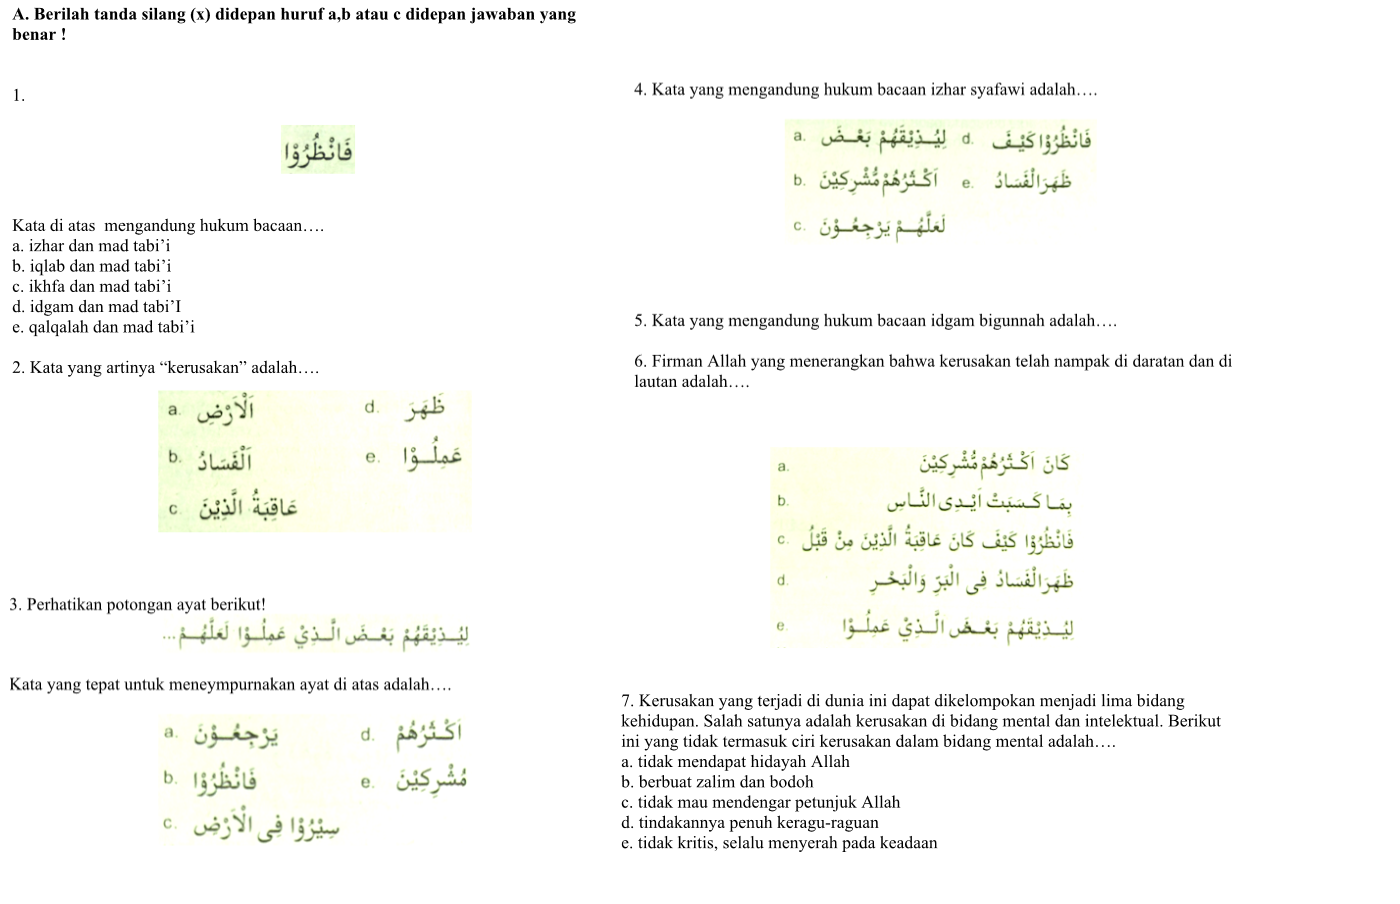 A. Berilah tanda silang (x) didepan huruf a,b atau c didepan jawaban yang
benar !
1.
فَانْظُرُوْا
Kata di atas  mengandung hukum bacaan….
a. izhar dan mad tabi’i
b. iqlab dan mad tabi’i
c. ikhfa dan mad tabi’i
d. idgam dan mad tabi’I
e. qalqalah dan mad tabi’i
2. Kata yang artinya “kerusakan” adalah….
a. اَلْاَرْضِ
d. ظَهَرَ
b. اَلْفَسَادُ
e. عَمِلُـوْا
c. عَاقِبَةُ الَّذِيْنَ
3. Perhatikan potongan ayat berikut!
لِيُـذِيْقَهُمْ بَعْـضَ الَّـذِيْ عَمِلُـوْا لَعَلَّهُـمْ...
Kata yang tepat untuk meneympurnakan ayat di atas adalah….
a. يَرْجِعُـوْنَ
d. اَكْـثَرُهُمْ
b. فَانْظُرُوْا
e. مُشْرِكِيْنَ
c. سِيْرُوْا فِى الْاَرْضِ
4. Kata yang mengandung hukum bacaan izhar syafawi adalah….
a. لِيُـذِيْقَهُمْ بَعْـضَ
d. فَانْظُرُوْا كَيْـفَ
b. اَكْـثَرُهُمْ مُّشْرِكِيْنَ
e. ظَهَرَ الْفَسَادُ
c. لَعَلَّهُـمْ يَرْجِعُـوْنَ
5. Kata yang mengandung hukum bacaan idgam bigunnah adalah….
6. Firman Allah yang menerangkan bahwa kerusakan telah nampak di daratan dan di
lautan adalah….
a. كَانَ اَكْـثَرُهُمْ مُّشْرِكِيْنَ
b. بِمَا كَـسَبَتْ اَيْـدِى النَّـاسِ
c. فَانْظُرُوْا كَيْفَ كَانَ عَاقِبَةُ الَّذِيْنَ مِنْ قَبْلُ
d. ظَهَرَ الْفَسَادُ فِى الْبَرِّ وَالْبَحْـرِ
e. لِيُـذِيْقَهُمْ بَعْـضَ الَّـذِيْ عَمِلُـوْا
7. Kerusakan yang terjadi di dunia ini dapat dikelompokan menjadi lima bidang
kehidupan. Salah satunya adalah kerusakan di bidang mental dan intelektual. Berikut
ini yang tidak termasuk ciri kerusakan dalam bidang mental adalah….
a. tidak mendapat hidayah Allah
b. berbuat zalim dan bodoh
c. tidak mau mendengar petunjuk Allah
d. tindakannya penuh keragu-raguan
e. tidak kritis, selalu menyerah pada keadaan